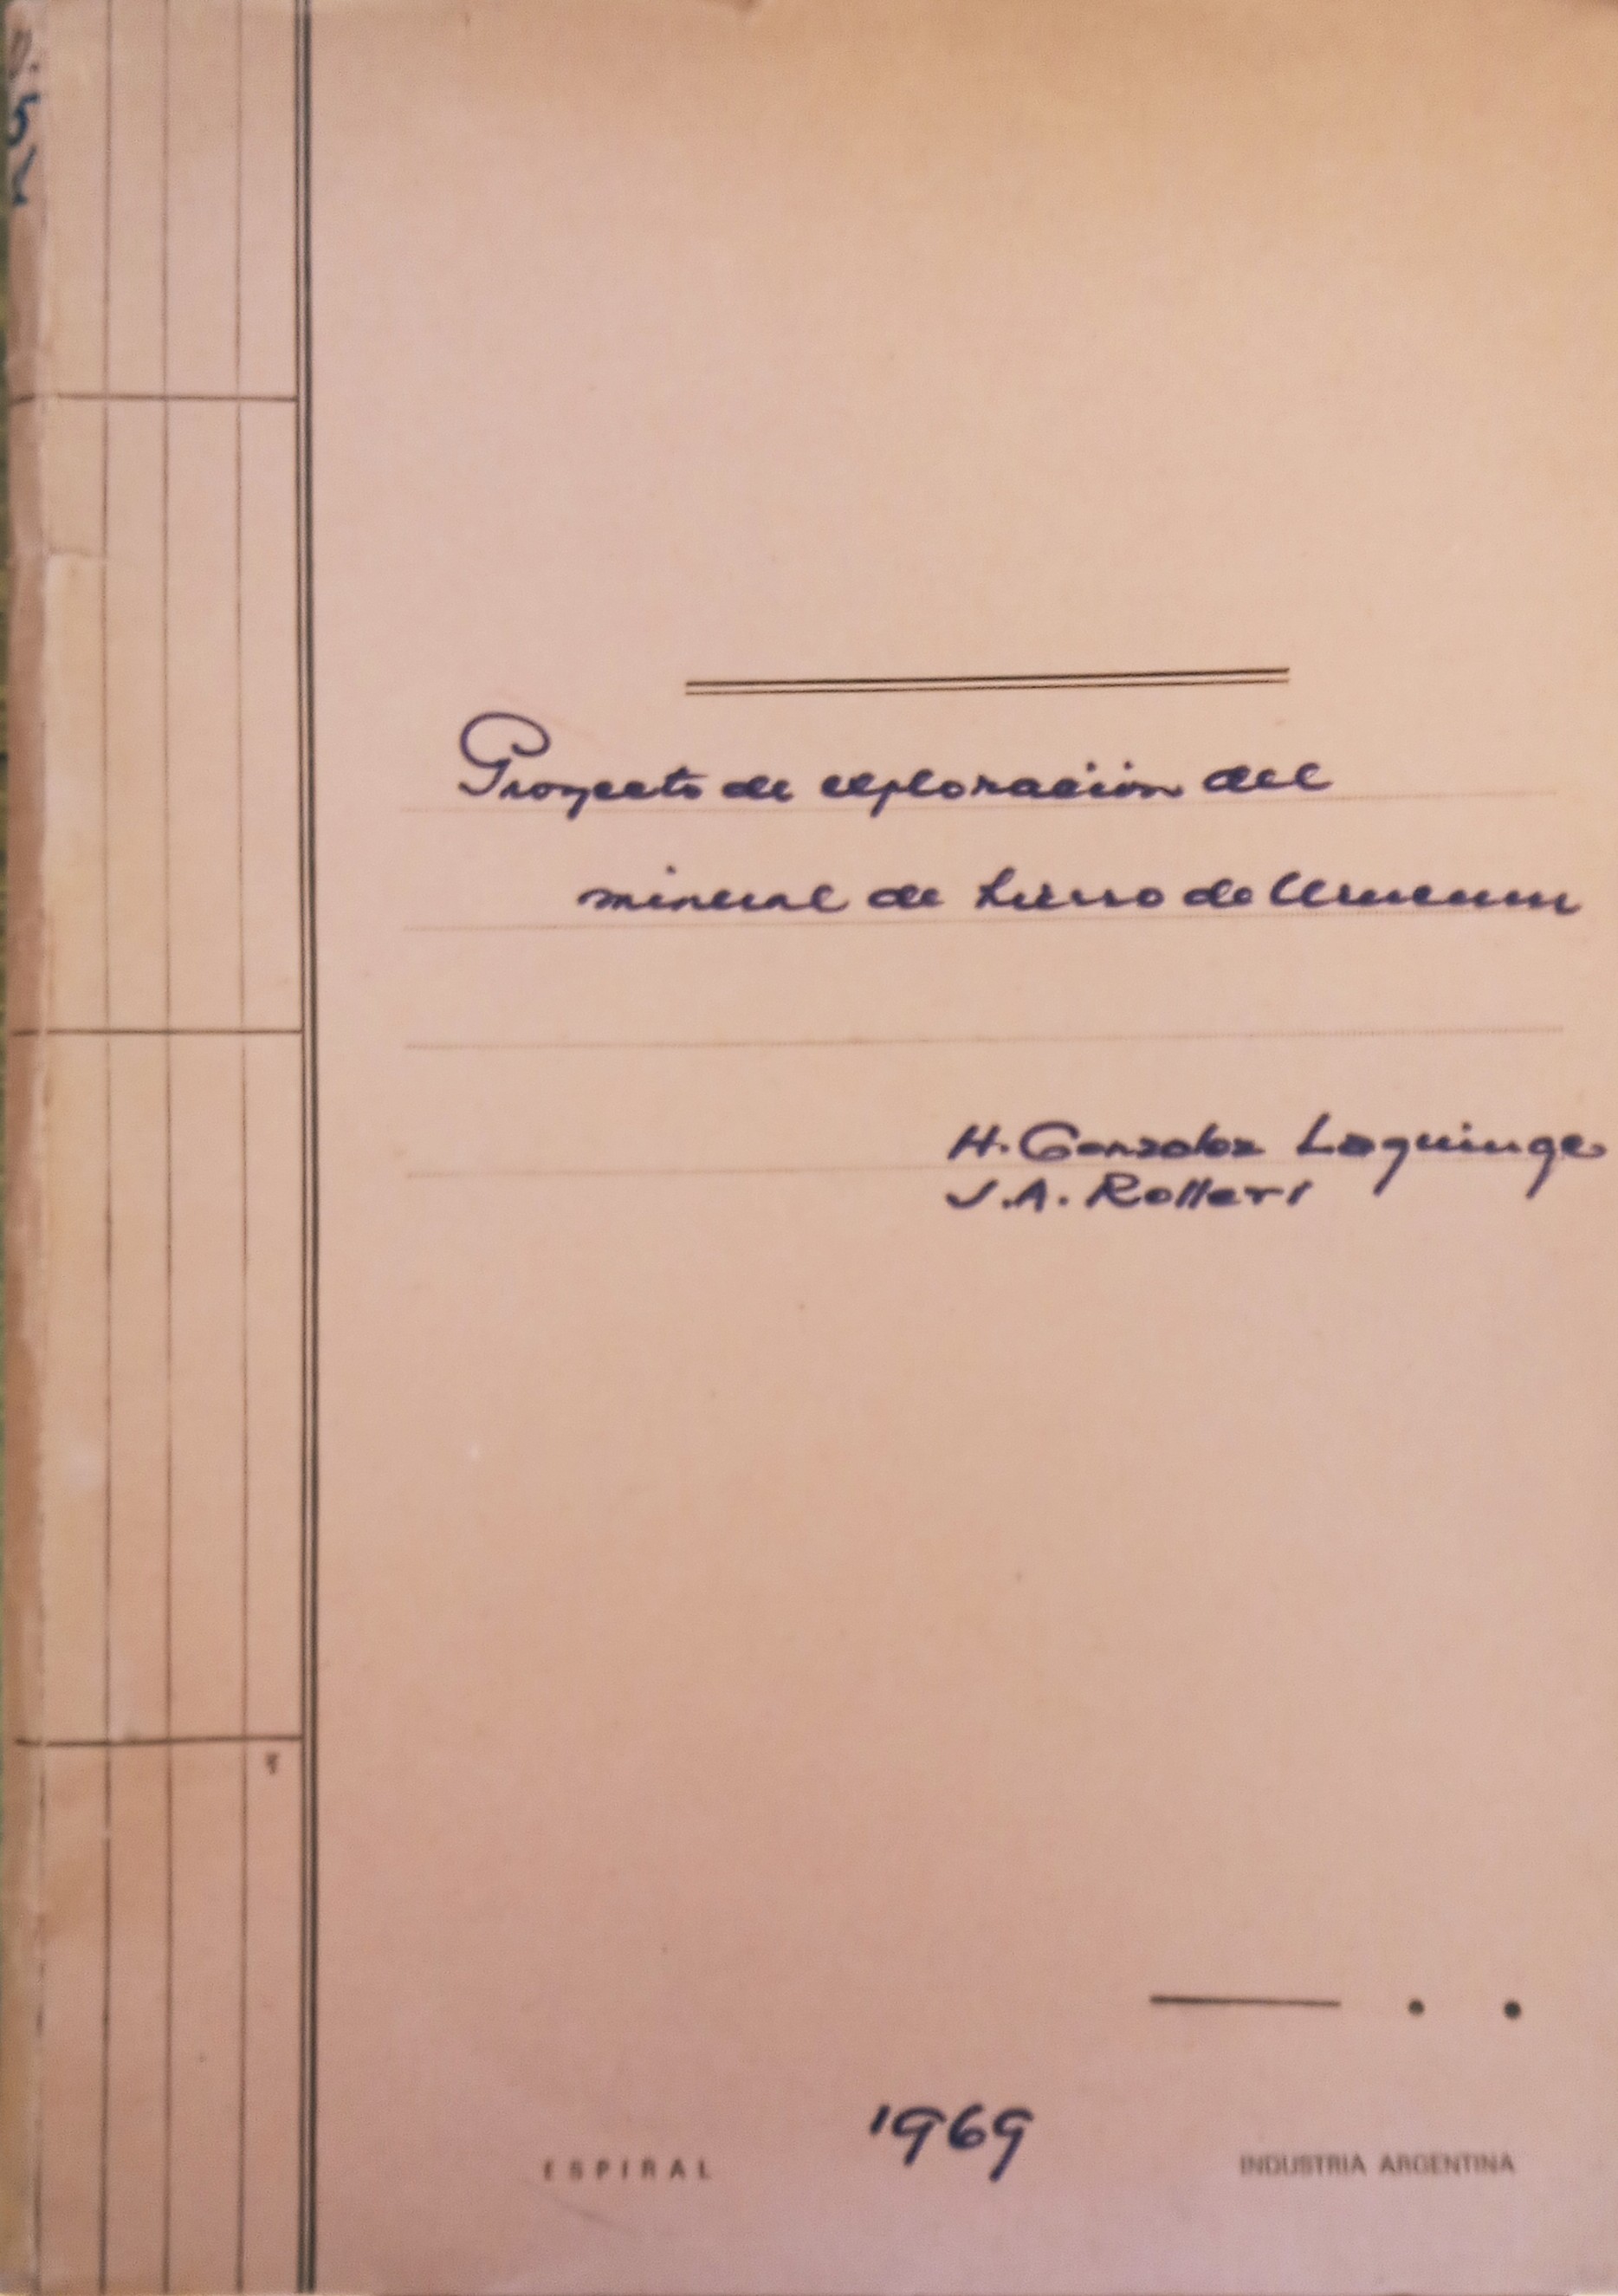 Proyecto de exploración del
mineral de hierro de Urucum
H. Gonzalez Laguinge
J.A. Rolleri
1969
ESPIRAL
INDUSTRIA ARGENTINA